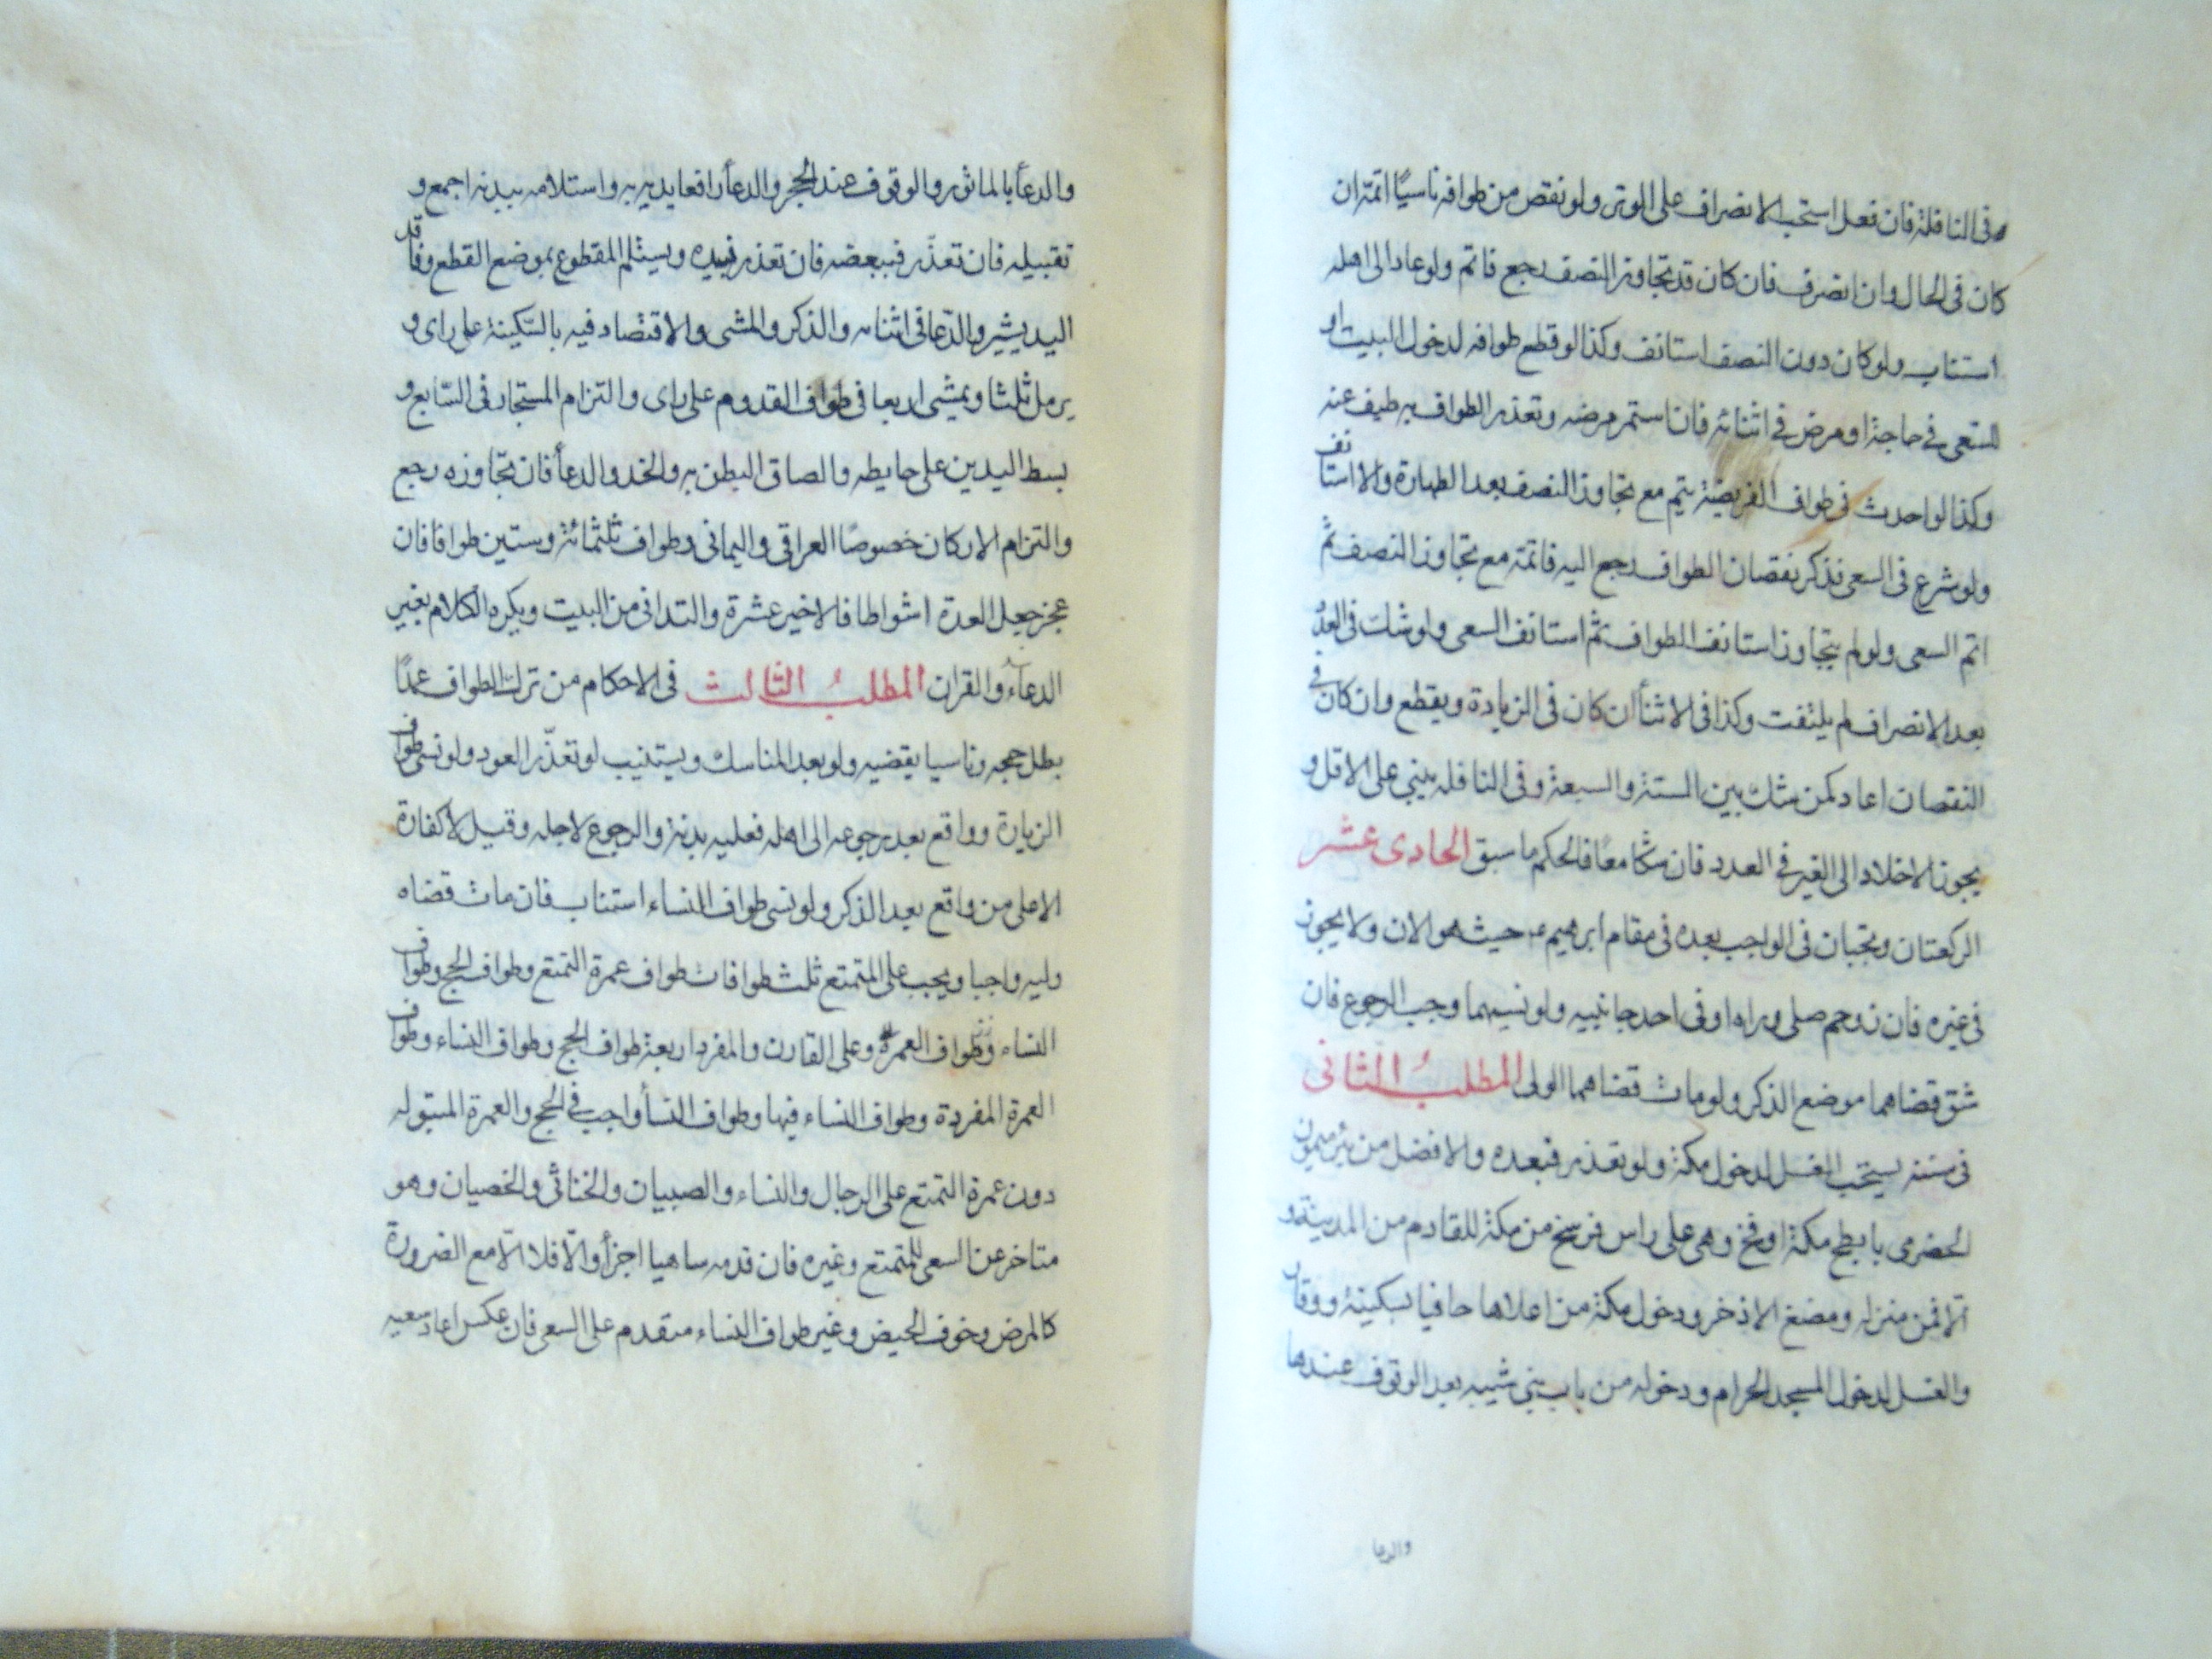 فى النافلة فان فعل استحب الانصراف على الوتر ولو نقص من طوافه ناسيًا اتمه ان
كان فى الحال وان انصرف فان كان قد تجاوز النصف رجع فاتم ولو عاد الى اهله
استناب ولو كان دون النصف استانف وكذا لو قطع طوافه لدخول البيت او
للسعى فى حاجة او مرض فى اثنائه فان استمر مرضه وتعذر الطواف به طيف عنه
وكذا لو احدث فى طواف الفريضة يتم مع تجاوز النصف بعد الطهارة والا استانف
ولو شرع فى السعى فذكر نقصان الطواف رجع اليه فاتمه مع تجاوز النصف ثم
اتم السعى ولو لم يتجاوز استانف الطواف ثم استانف السعى ولو شك فى العدد
بعد الانصراف لم يلتفت وكذا فى الاثنأ ان كان فى الزيادة ويقطع وان كان فى
النقصان اعاد كمن شك بين الستة والسبعة وفى النافله يبنى على الاقل و
يجوز الاخلاد الى الغير فى العدد فان شكا معًا فالحكم ما سبق الحادى عشر
الركعتان وتجبان فى الواجب بعده فى مقام ابرهيم ع حيث هو الان ولا يجوز
فى غيره فان زوحم صلى وراه او فى احد جانبيه ولو نسيهما وجب الرجوع فان
شق قضاهما موضع الذكر ولو مات قضاهما الولى المطلبُ الثانى
فى سننه يستحب الغسل لدخول مكة ولو تعذر فبعده والافضل من بئر ميمون
الحضرمى بابطح مكة او فخ وهى على راس فرسخ من مكة للقادم من المدينة و
الا فمن منزله ومضغ الاذخر ودخول مكة من اعلاها حافيا بسكينة ووقار
والغسل لدخول المسجد الحرام ودخوله من باب بنى شيبه بعد الوقوف عندها
والدعا
والدعأ بالماثور والوقوف عند الحجر والدعأ رافعا يديه به واستلامه ببدنه اجمع و
تقبيله فان تعذّر فببعضه فان تعذر فبيده ويستلم المقطوع بموضع القطع وفاقد
اليد يشير والدّعا فى اثنائه والذكر والمشى والاقتصاد فيه بالسّكينة على راى و
يرمل ثلثا ويمشى اربعا فى طواف القدوم على راى والتزام المستجار فى السّابع و
بسط اليدين على حايطه والصاق البطن به والخد والدعأ فان تجاوزه رجع
والتزام الاركان خصوصًا العراقى واليمانى وطواف ثلثمائة وستين طوافا فان
عجز جعل العدة اشواطا فالاخير عشرة والتدانى من البيت ويكره الكلام بغير
الدعآء والقران المطلبُ الثالث فى الاحكام من ترك الطواف عمدًا
بطل حجه وناسيا يقضيه ولو بعد المناسك ويستنيب لو تعذّر العود ولو نسى طواف
الزيارة وواقع بعد رجوعه الى اهله فعليه بدنة والرجوع لاجله وقيل لا كفارة
الا على من واقع بعد الذكر ولو نسى طواف النساء استناب فان مات قضاه
وليه واجبا ويجب على المتمتع ثلث طوافات طواف عمرة التمتع وطواف الحج وطواف
النساء وطواف العمرة وعلى القارن والمفرد اربعة طواف الحج وطواف النساء وطواف
العمرة المفردة وطواف النساء فيها وطواف النسأ واجب فى الحج والعمرة المبتوله
دون عمرة التمتع على الرجال والنساء والصبيان والخناثى والخصيان وهو
متاخر عن السعى للمتمتع وغيره فان قدمه ساهيا اجزأ والّا فلا الّا مع الضرورة
كالمرض وخوف الحيض وغير طواف النساء متقدم على السعى فان عكس اعاد سعيه